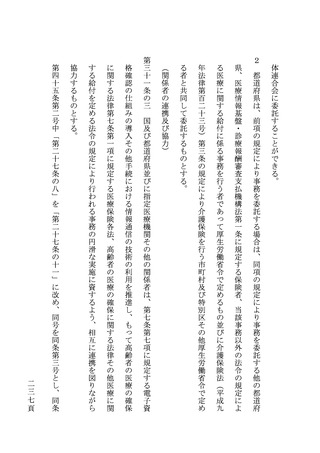 体連合会に委託することができる。
２　都道府県は、前項の規定により事務を委託する場合は、同項の規定により事務を委託する他の都道府
県、医療情報基盤・診療報酬審査支払機構法第一条に規定する保険者、当該事務以外の法令の規定によ
る医療に関する給付に係る事務を行う者であって厚生労働省令で定めるもの並びに介護保険法（平成九
年法律第百二十三号）第三条の規定により介護保険を行う市町村及び特別区その他厚生労働省令で定め
る者と共同して委託するものとする。
（関係者の連携及び協力）
第三十一条の三　国及び都道府県並びに指定医療機関その他の関係者は、第七条第七項に規定する電子資
格確認の仕組みの導入その他手続における情報通信の技術の利用を推進し、もって高齢者の医療の確保
に関する法律第七条第一項に規定する医療保険各法、高齢者の医療の確保に関する法律その他医療に関
する給付を定める法令の規定により行われる事務の円滑な実施に資するよう、相互に連携を図りながら
協力するものとする。
第四十五条第二号中「第二十七条の八」を「第二十七条の十一」に改め、同号を同条第三号とし、同条
二三七頁